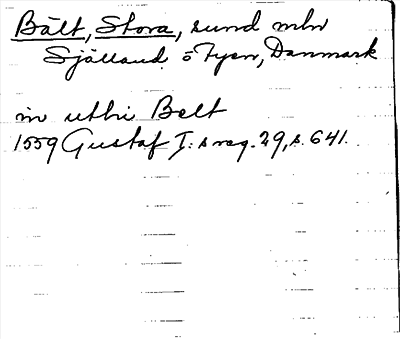 Bält, Stora, sund mln
Själland o Fyen, Danmark
in uthi Belt
1559 Gustaf I:s reg. 29, s. 641.